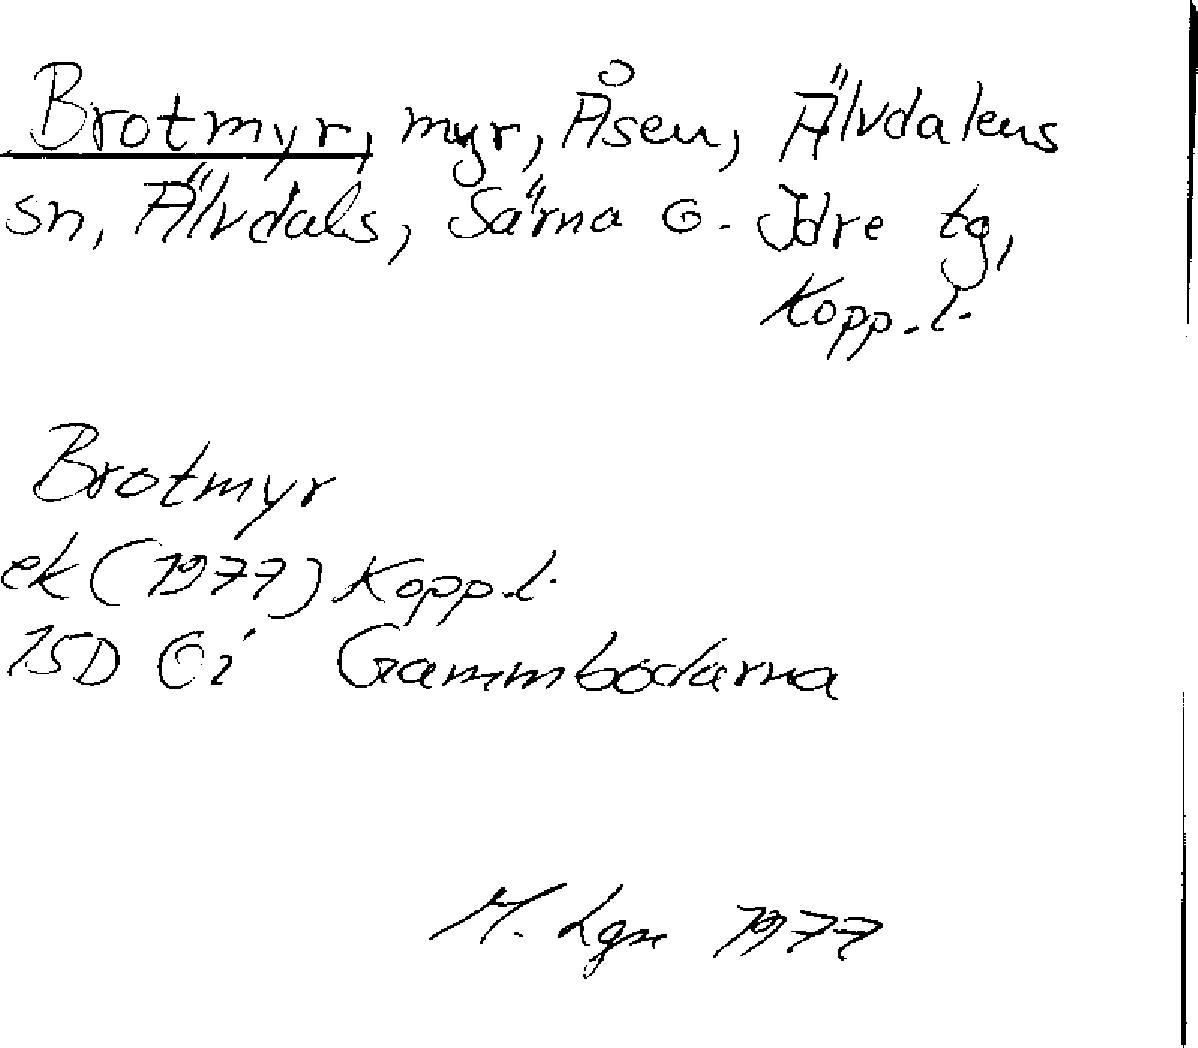 Brotmyr, myr, Åsen, Älvdalens
sn, Älvdals, Särna o. Idre tg,
Kopp.l.
Brotmyr
ek (1977) Kopp.l.
15D Gi Gammbodarna
M. Lgn 1977